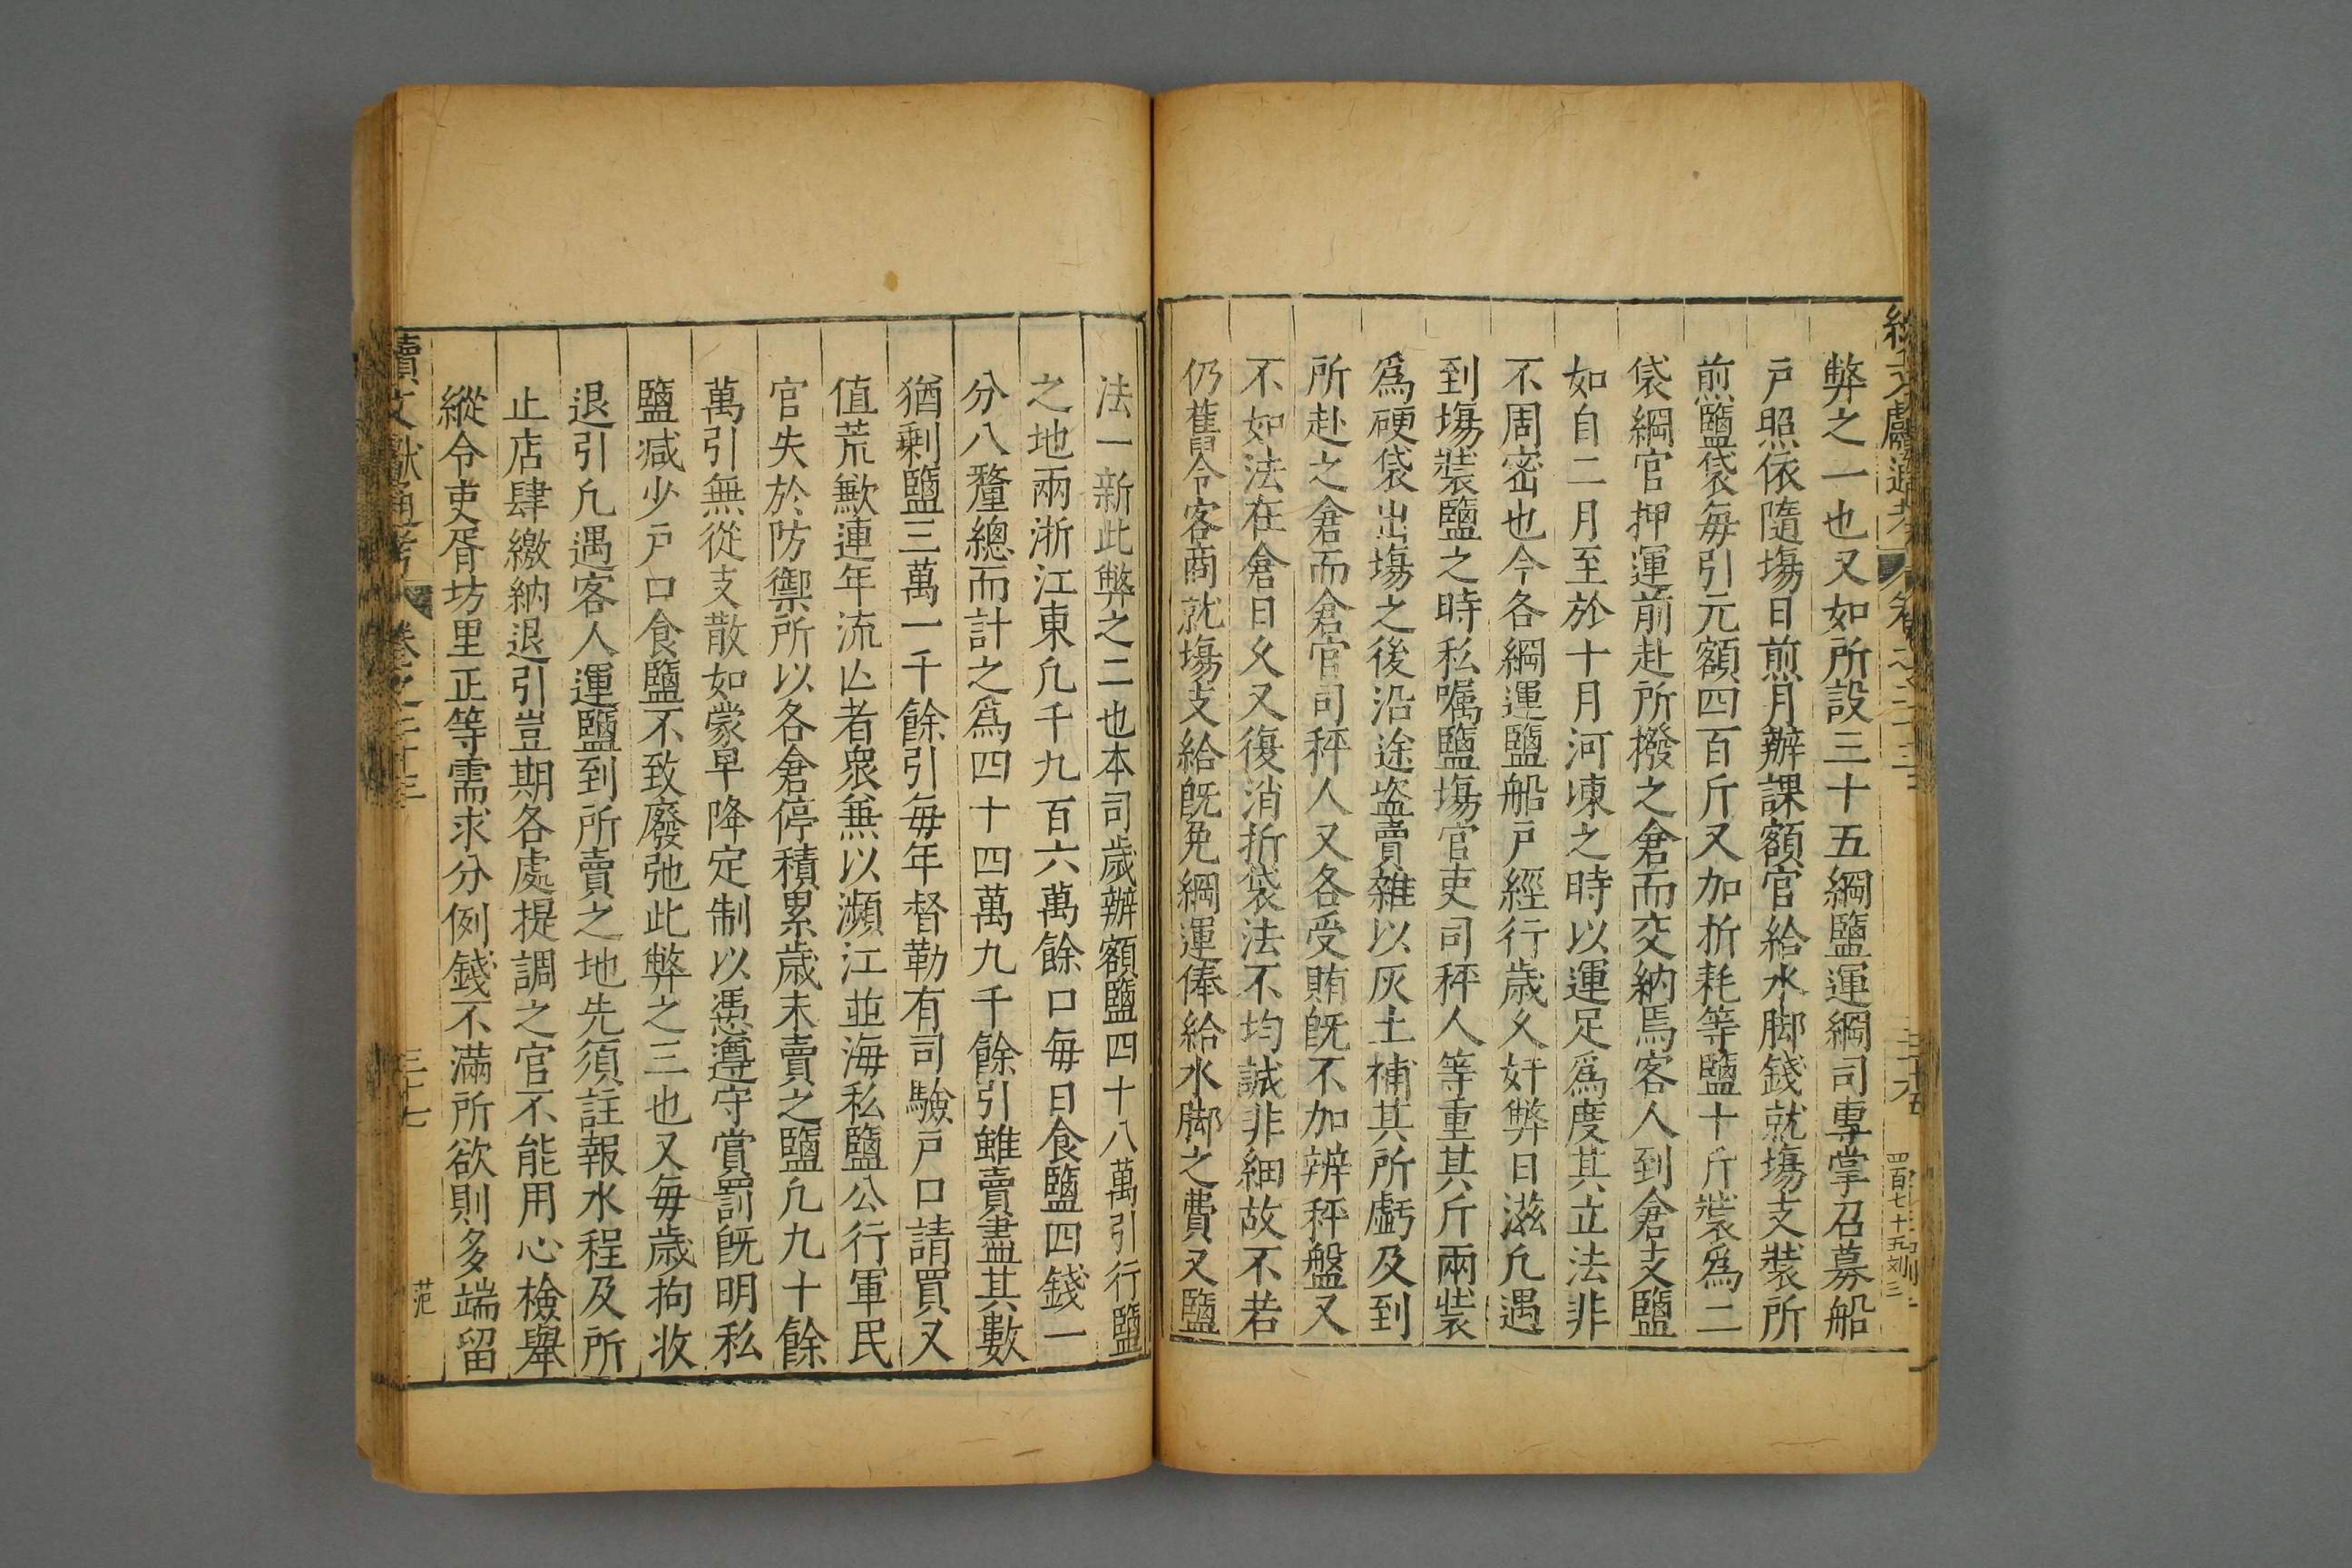 弊之一也又如所設三十五綱鹽運綱司專掌召募船
戶照依隨場日煎月辦課額官給水脚錢就場支裝所
煎鹽袋每引元額四百斤又加折耗等鹽十斤裝爲二
袋綱官押運前赴所撥之倉而交納焉客人到倉支鹽
如自二月至於十月河凍之時以運足爲度其立法非
不周密也今各綱運鹽船戶經行歲久奸弊日滋凢遇
到場裝鹽之時私囑鹽場官吏司秤人等重其斤兩裝
爲硬袋出場之後沿途盜賣雜以灰土補其所虧及到
所赴之倉而倉官司秤人又各受賄旣不加辨秤盤又
不如法在倉日久又復消折袋法不均誠非細故不若
仍舊令客商就場支給旣免綱運俸給水脚之費又鹽
法一新此弊之二也本司歲辦額鹽四十八萬引行鹽
之地兩浙江東凢千九百六萬餘口每日食鹽四錢一
分八釐總而計之爲四十四萬九千餘引雖賣盡其數
猶剩鹽三萬一千餘引每年督勒有司驗戶口請買又
值荒歉連年流亾者衆兼以瀕江並海私鹽公行軍民
官失於防禦所以各倉停積累歲未賣之鹽凢九十餘
萬引無從支散如蒙早降定制以憑遵守賞罰旣明私
鹽减少戶口食鹽不致廢弛此弊之三也又每歲拘收
退引凢遇客人運鹽到所賣之地先須註報水程及所
止店肆繳納退引豈期各處提調之官不能用心檢舉
縱令吏胥坊里正等需求分例錢不滿所欲則多端留
續文獻通考 卷之二十三
三十七